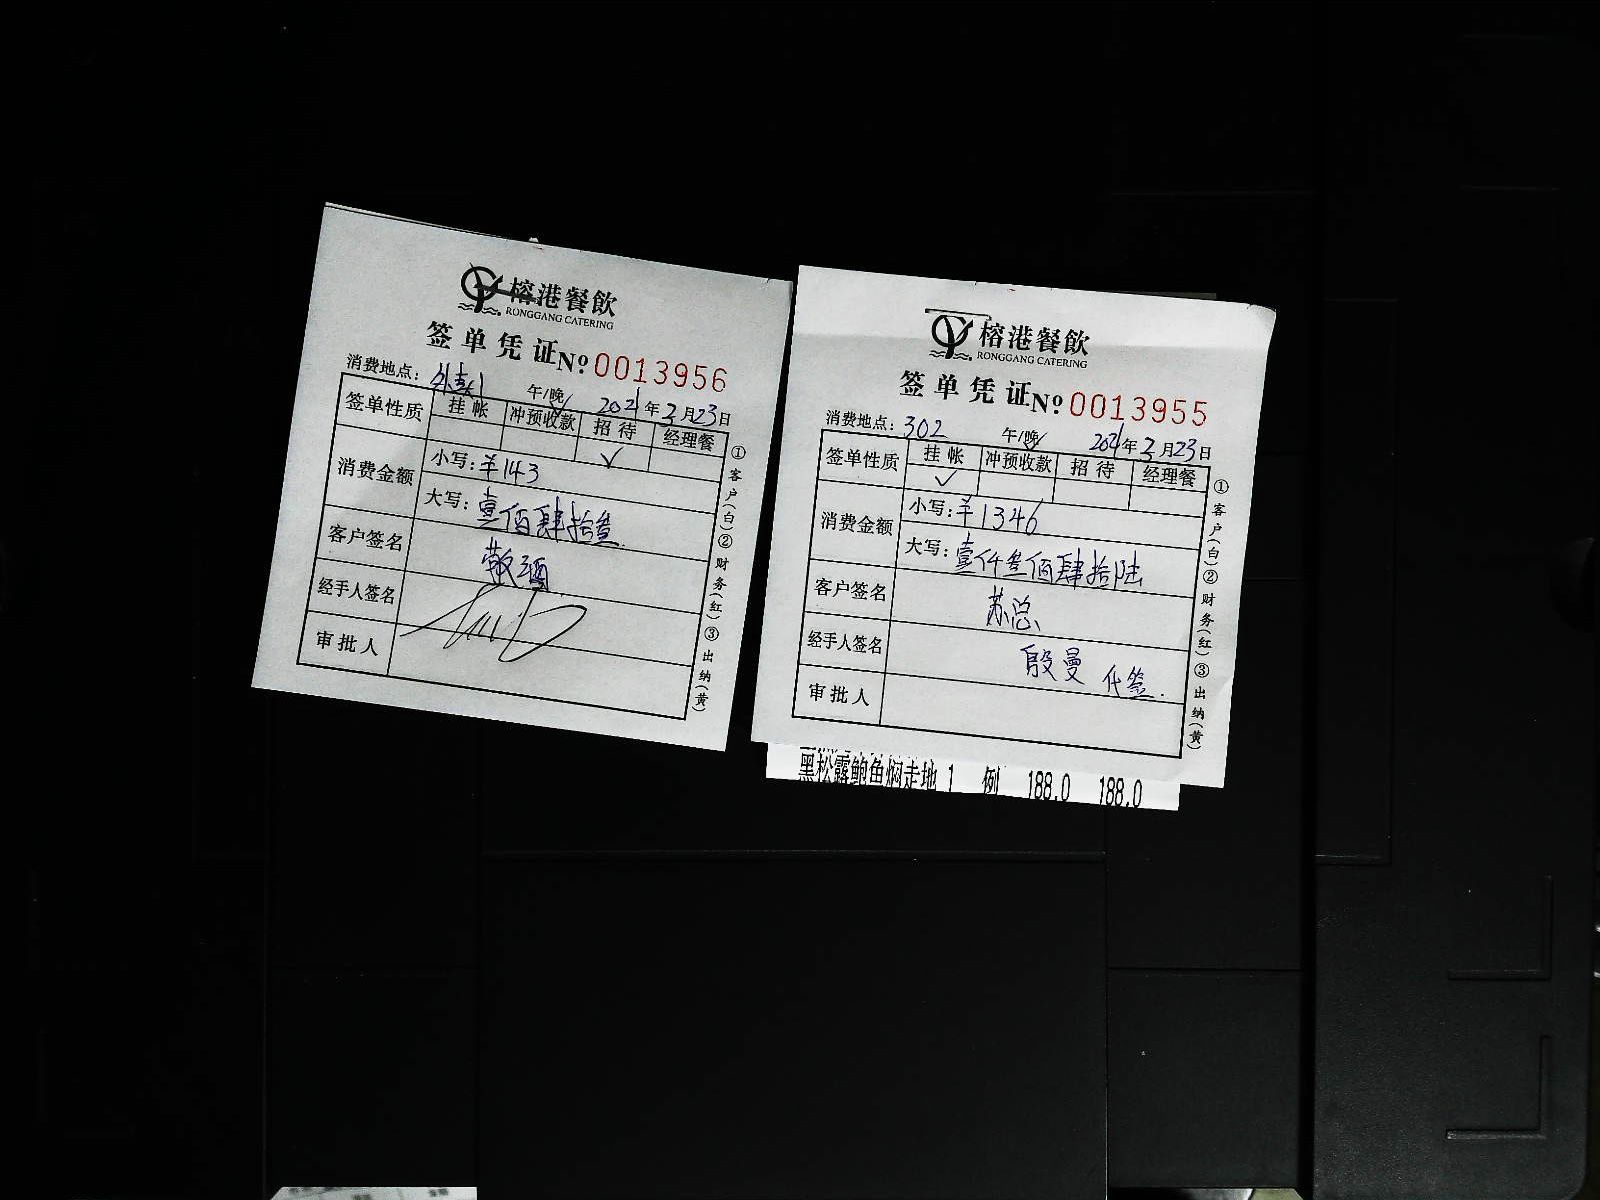 榕港餐飲
RONGGANG CATERING
签单凭证 No 0013956
消费地点：外卖1 午/晚 2021年3月23日
签单性质 挂帐 冲预收款 招待 经理餐
✓
消费金额 小写：¥143
大写：壹佰肆拾叁
客户签名 敬酒
经手人签名
审批人
①客户(白)②财务(红)③出纳(黄)
榕港餐飲
RONGGANG CATERING
签单凭证 No 0013955
消费地点：302 午/晚 2021年3月23日
签单性质 挂帐 冲预收款 招待 经理餐
✓
消费金额 小写：¥1346
大写：壹仟叁佰肆拾陆
客户签名 苏总
经手人签名 殷曼 代签.
审批人
①客户(白)②财务(红)③出纳(黄)
黑松露鲍鱼焖走地 1 例 188.0 188.0